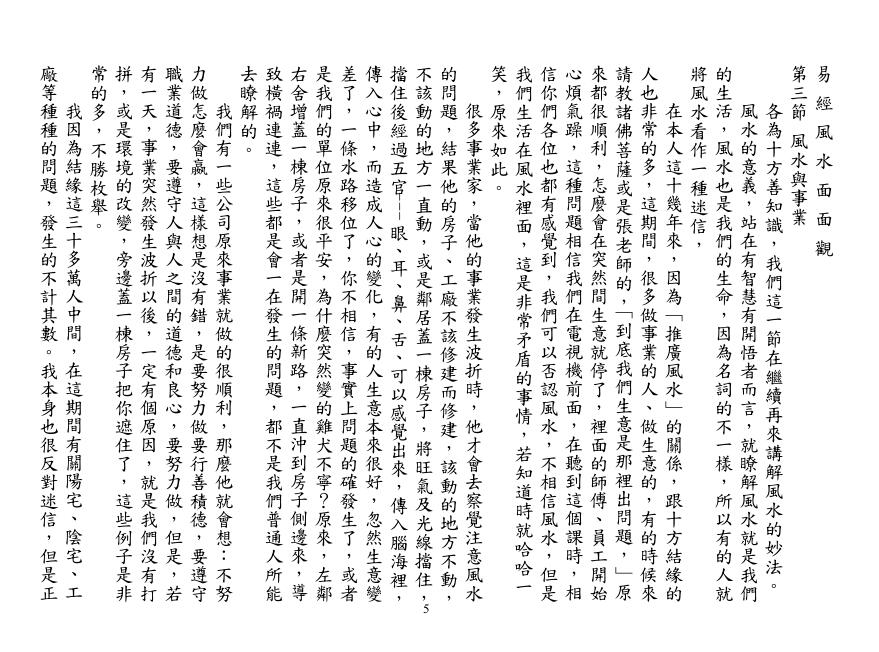 易經風水面面觀
第三節 風水與事業
各為十方善知識，我們這一節在繼續再來講解風水的妙法。
風水的意義，站在有智慧有開悟者而言，就瞭解風水就是我們
的生活，風水也是我們的生命，因為名詞的不一樣，所以有的人就
將風水看作一種迷信，
在本人這十幾年來，因為「推廣風水」的關係，跟十方結緣的
人也非常的多，這期間，很多做事業的人、做生意的，有的時候來
請教諸佛菩薩或是張老師的，「到底我們生意是那裡出問題，」原
來都很順利，怎麼會在突然間生意就停了，裡面的師傅、員工開始
心煩氣躁，這種問題相信我們在電視機前面，在聽到這個課時，相
信你們各位也都有感覺到，我們可以否認風水，不相信風水，但是
我們生活在風水裡面，這是非常矛盾的事情，若知道時就哈哈一
笑，原來如此。
很多事業家，當他的事業發生波折時，他才會去察覺注意風水
的問題，結果他的房子、工廠不該修建而修建，該動的地方不動，
不該動的地方一直動，或是鄰居蓋一棟房子，將旺氣及光線擋住，
擋住後經過五官──眼、耳、鼻、舌、可以感覺出來，傳入腦海裡，
傳入心中，而造成人心的變化，有的人生意本來很好，忽然生意變
差了，一條水路移位了，你不相信，事實上問題的確發生了，或者
是我們的單位原來很平安，為什麼突然變的雞犬不寧？原來，左鄰
右舍增蓋一棟房子，或者是開一條新路，一直沖到房子側邊來，導
致橫禍連連，這些都是會一在發生的問題，都不是我們普通人所能
去瞭解的。
我們有一些公司原來事業就做的很順利，那麼他就會想：不努
力做怎麼會贏，這樣想是沒有錯，是要努力做要行善積德，要遵守
職業道德，要遵守人與人之間的道德和良心，要努力做，但是，若
有一天，事業突然發生波折以後，一定有個原因，就是我們沒有打
拼，或是環境的改變，旁邊蓋一棟房子把你遮住了，這些例子是非
常的多，不勝枚舉。
我因為結緣這三十多萬人中間，在這期間有關陽宅、陰宅、工
廠等種種的問題，發生的不計其數。我本身也很反對迷信，但是正
5